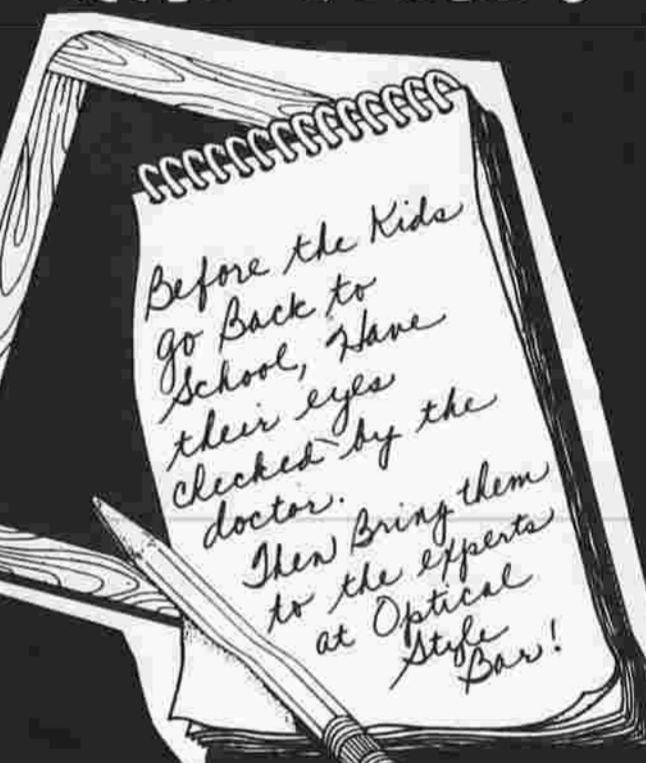 Before the Kids
go Back to
School, Have
their eyes
checked by the
doctor.
Then Bring them
to the experts
at Optical
Style
Bar!